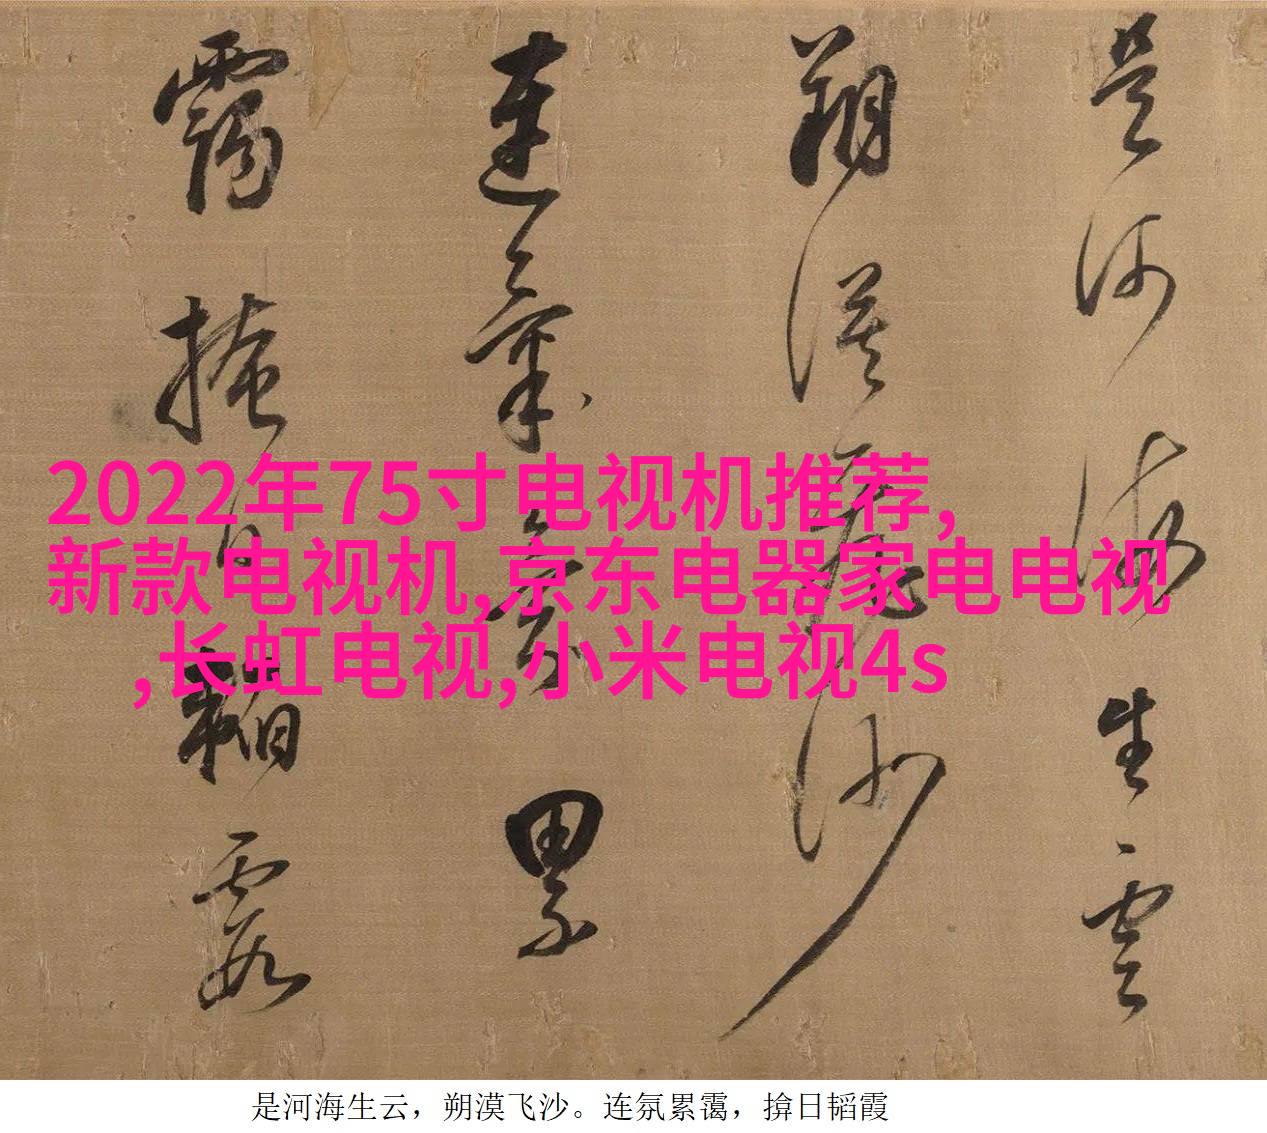 是河海生雲
朔漠飛沙
連氣氛累
靄掩日韜霞
2022年75寸电视机推荐,
新款电视机,京东电器家电电视
,长虹电视,小米电视4s
是河海生云，朔漠飞沙。连氛累霭，揜日韬霞